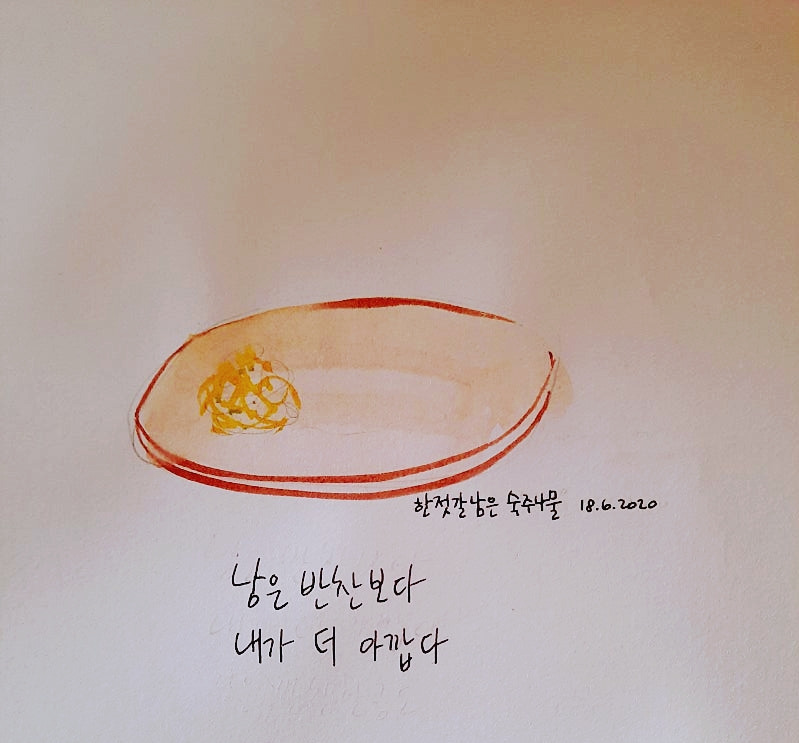 한젓갈남은 숙주나물 18.6.2020
남은 반찬보다
내가 더 아깝다